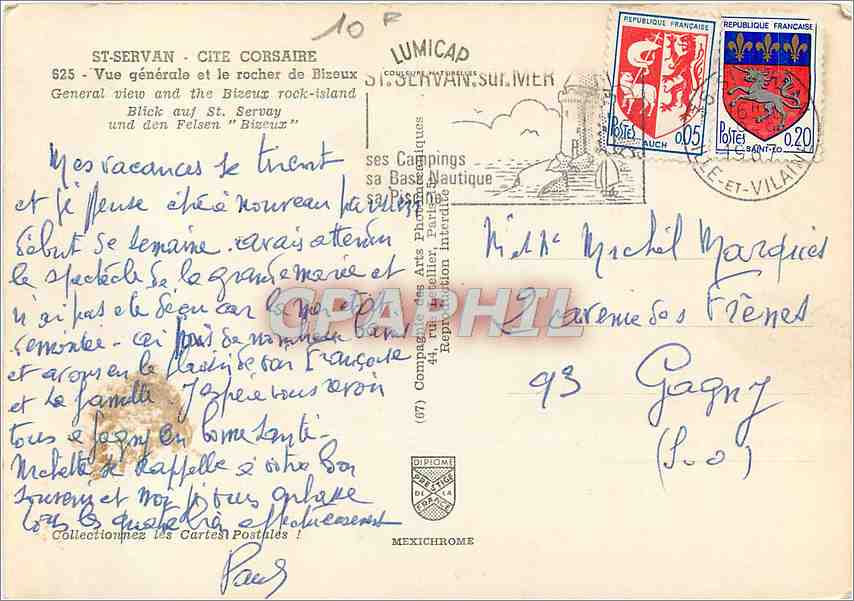 10 F
ST-SERVAN - CITE CORSAIRE
S25 - Vue générale et le rocher de Bizeux
General view and the Bizeux rock-island
Blick auf St. Servay
und den Felsen "Bizeux"
LUMICAP
COULEURS NATURELLES
ST. SERVAN.sur.MER
ses Campings
sa Base Nautique
sa Piscine
REPUBLIQUE FRANÇAISE
POSTES 0,05
AUCH
REPUBLIQUE FRANÇAISE
POSTES 0,20
SAINT-LO
1967
ILLE-ET-VILAINE
Mes vacances se tirent
et je pense être à nouveau parmi
début de semaine. avais attendu
le spectacle de la grande marée et
n'ai pas été déçu car la mer était
remontée - ai pris de nombreux bains
et avons eu le plaisir de voir Françoise
et la famille. J'espère vous revoir
tous à Gagny en bonne santé -
se rappelle à votre bon
souvenir et moi je vous embrasse
tous les quatre très affectueusement
Paul
Collectionnez les Cartes Postales !
(67) Compagnie des Arts Photomécaniques
44, rue Letellier, Paris-15e
Reproduction Interdite
CPAPHIL
DIPLOME
PRESTIGE
DE LA
FRANCE
MEXICHROME
M et Me Michel Marquies
2 avenue des Frênes
93 Gagny
(S.O)